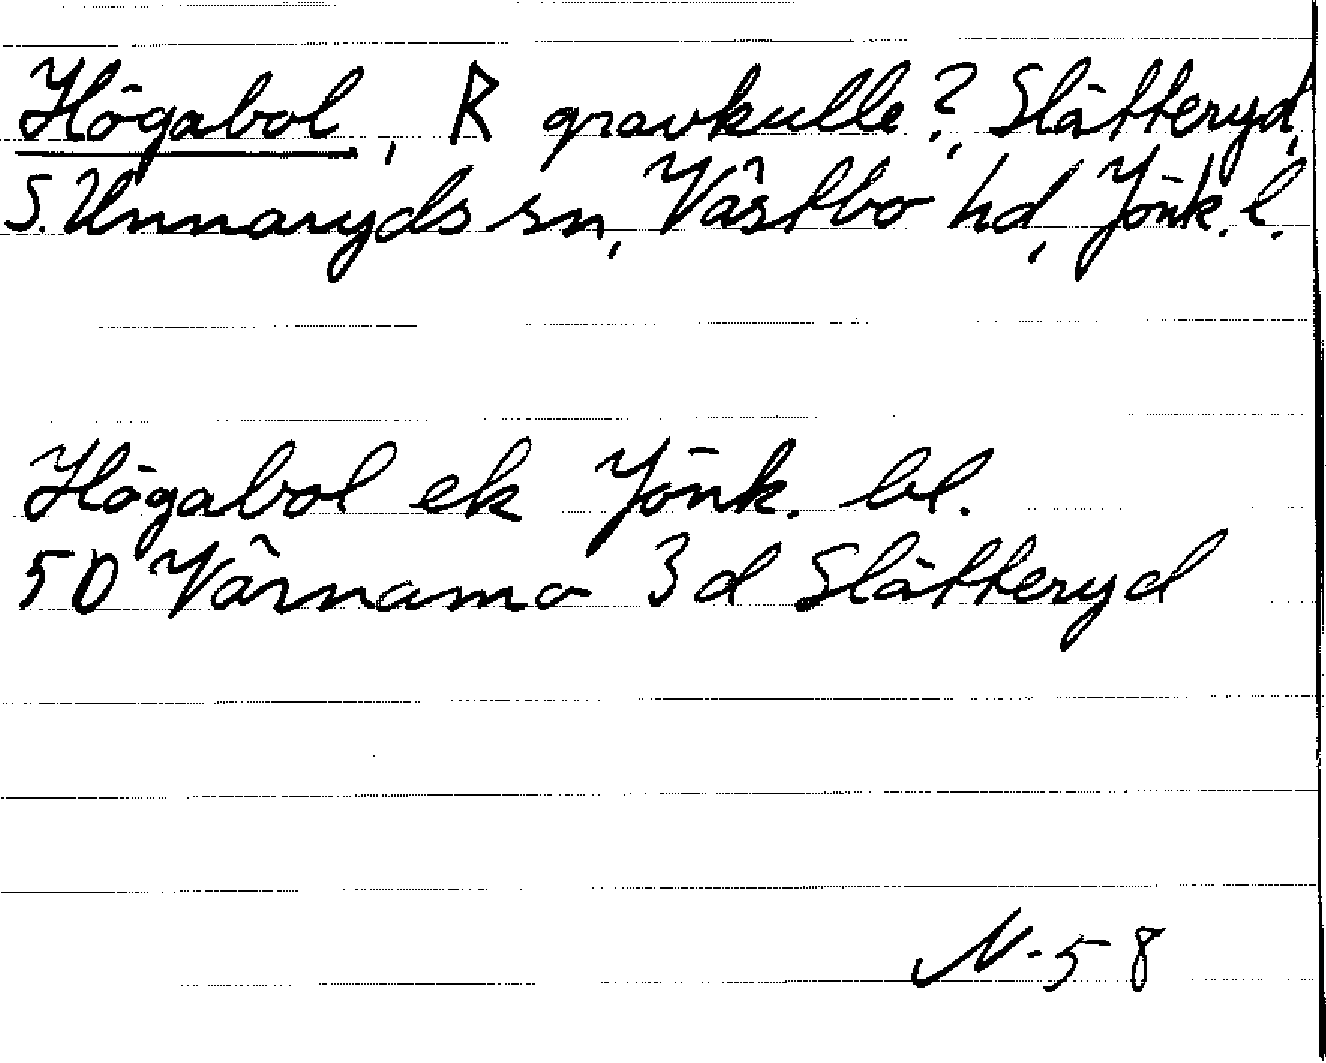 Högabol, R gravkulle?, Slätteryd,
S. Unnaryds sn, Västbo hd, Jönk. l.
Högabol ek Jönk. bl.
5D Värnamo 3d Slätteryd
N-58